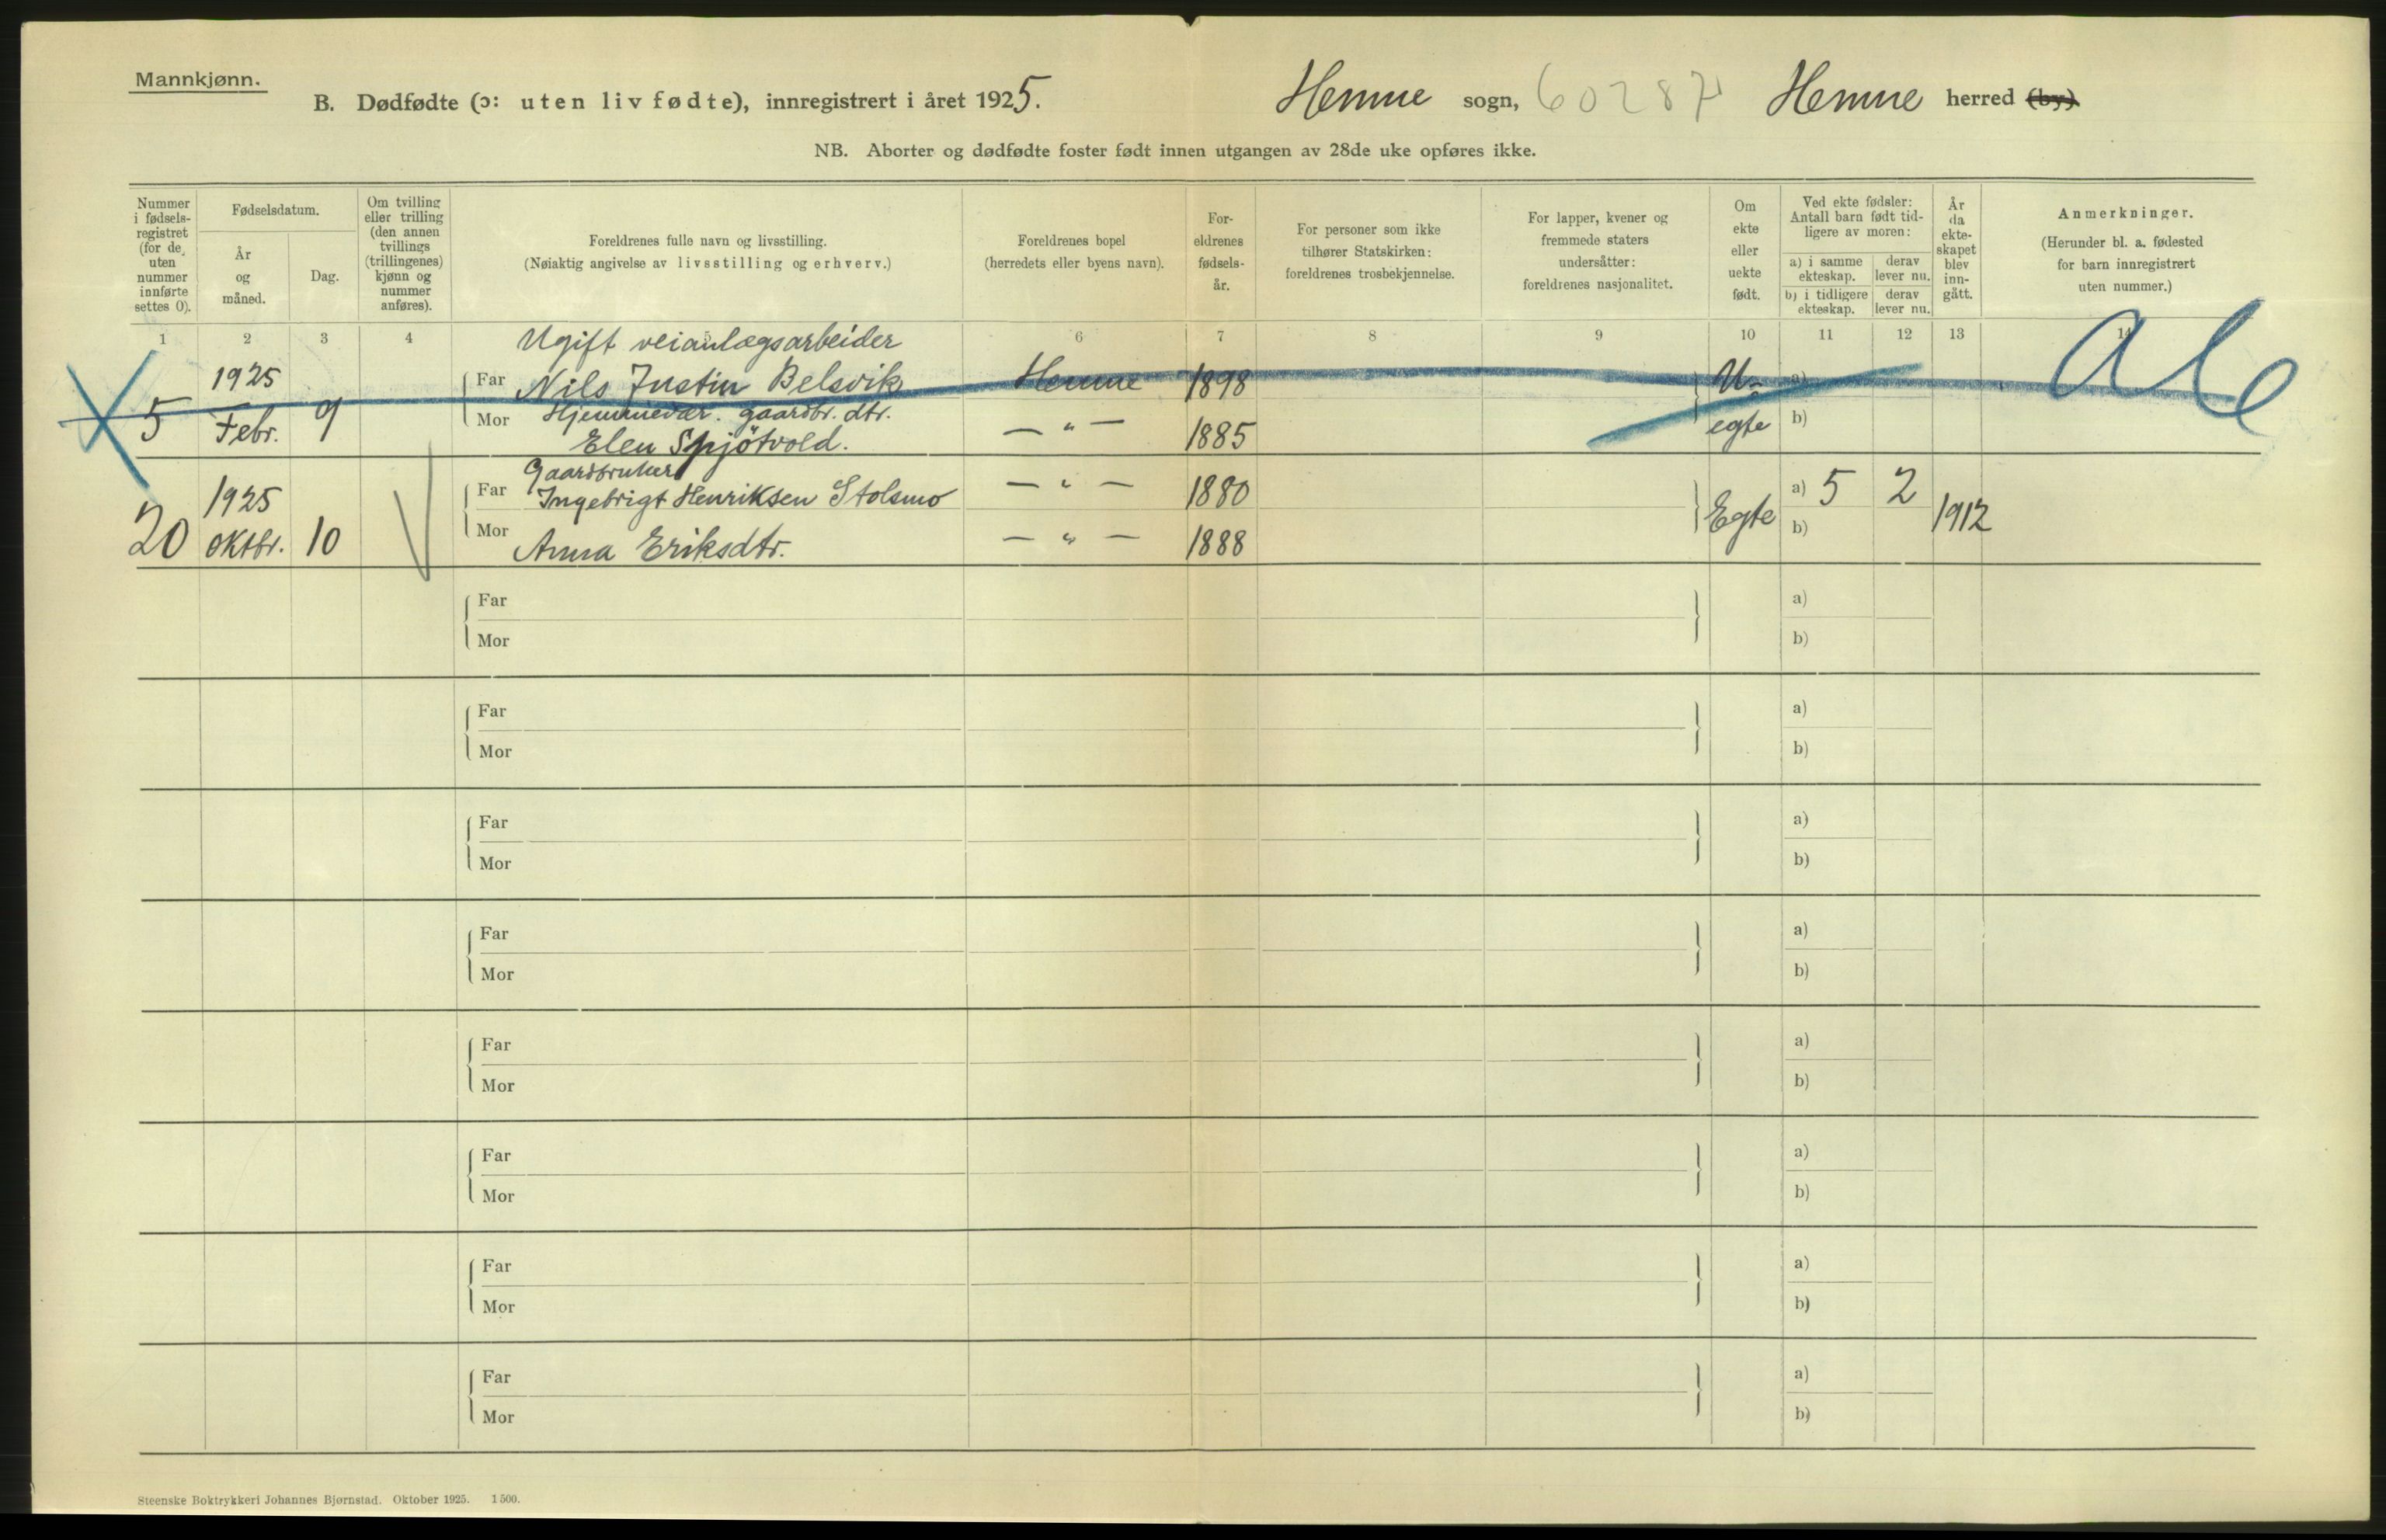 Mannkjønn.
B. Dødfødte (ɔ: uten liv fødte), innregistrert i året 1925. Hemne sogn, 60287 Hemne herred (by)
NB. Aborter og dødfødte foster født innen utgangen av 28de uke opføres ikke.
Nummer i fødselsregistret (for de uten nummer innførte settes 0).
Fødselsdatum.
År og måned.
Dag.
Om tvilling eller trilling (den annen tvillings (trillingenes) kjønn og nummer anføres).
Foreldrenes fulle navn og livsstilling.
(Nøiaktig angivelse av livsstilling og erhverv.)
Foreldrenes bopel
(herredets eller byens navn).
Foreldrenes fødselsår.
For personer som ikke tilhører Statskirken: foreldrenes trosbekjennelse.
For lapper, kvener og fremmede staters undersåtter: foreldrenes nasjonalitet.
Om ekte eller uekte født.
Ved ekte fødsler: Antall barn født tidligere av moren:
a) i samme ekteskap. derav lever nu.
b) i tidligere ekteskap. derav lever nu.
År da ekteskapet blev inngått.
Anmerkninger.
(Herunder bl. a. fødested for barn innregistrert uten nummer.)
1 2 3 4 5 6 7 8 9 10 11 12 13 14
Ugift veianlægsarbeider
5 1925 Febr. 9 Far Nils Justin Belsvik Hemne 1898 U- a)
Mor Hjemmevær. gaardbr. dtr.
Elen Spjøtvold. — " — 1885 egte b)
Gaardbruker
20 1925 oktbr. 10 Far Ingebrigt Henriksen Stolsmo — " — 1880 Egte a) 5 2 1912
Mor Anna Eriksdtr. — " — 1888 b)
Far a)
Mor b)
Far a)
Mor b)
Far a)
Mor b)
Far a)
Mor b)
Far a)
Mor b)
Far a)
Mor b)
Far a)
Mor b)
Far a)
Mor b)
Steenske Boktrykkeri Johannes Bjørnstad. Oktober 1925. 1500.